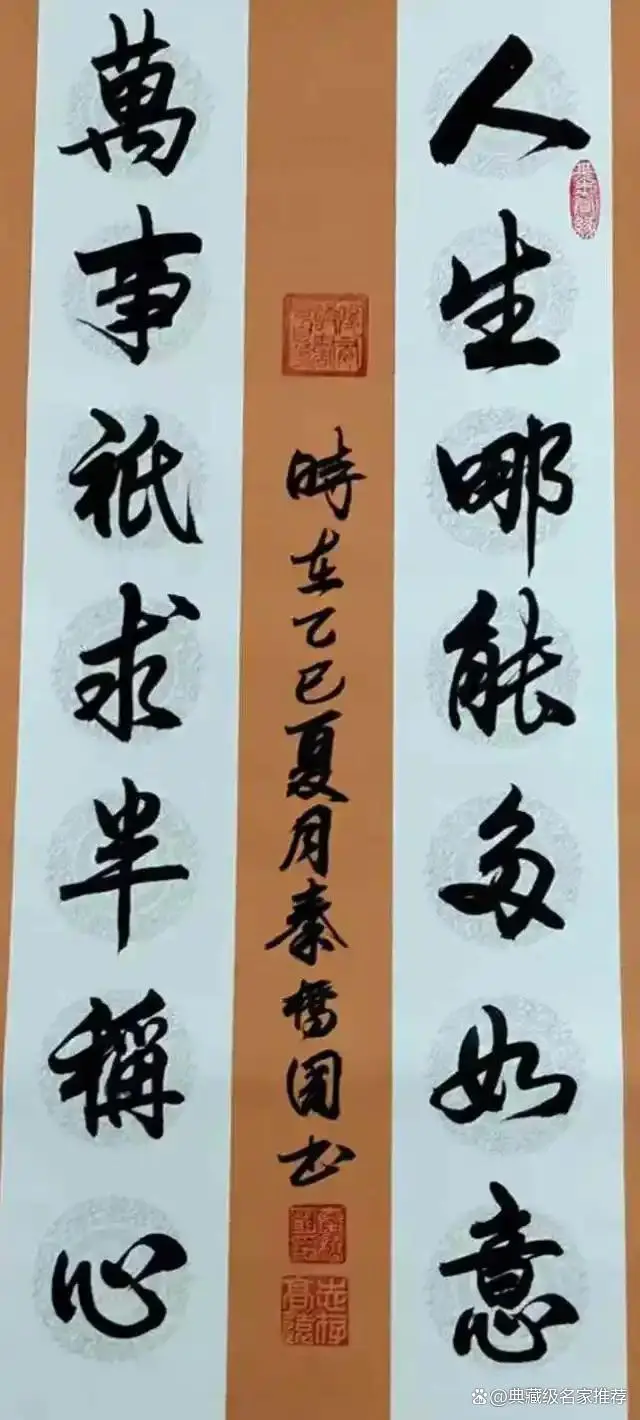 人生哪能多如意
萬事祇求半稱心
時在乙巳夏月秦橋国书
志存高遠
@典藏级名家推荐